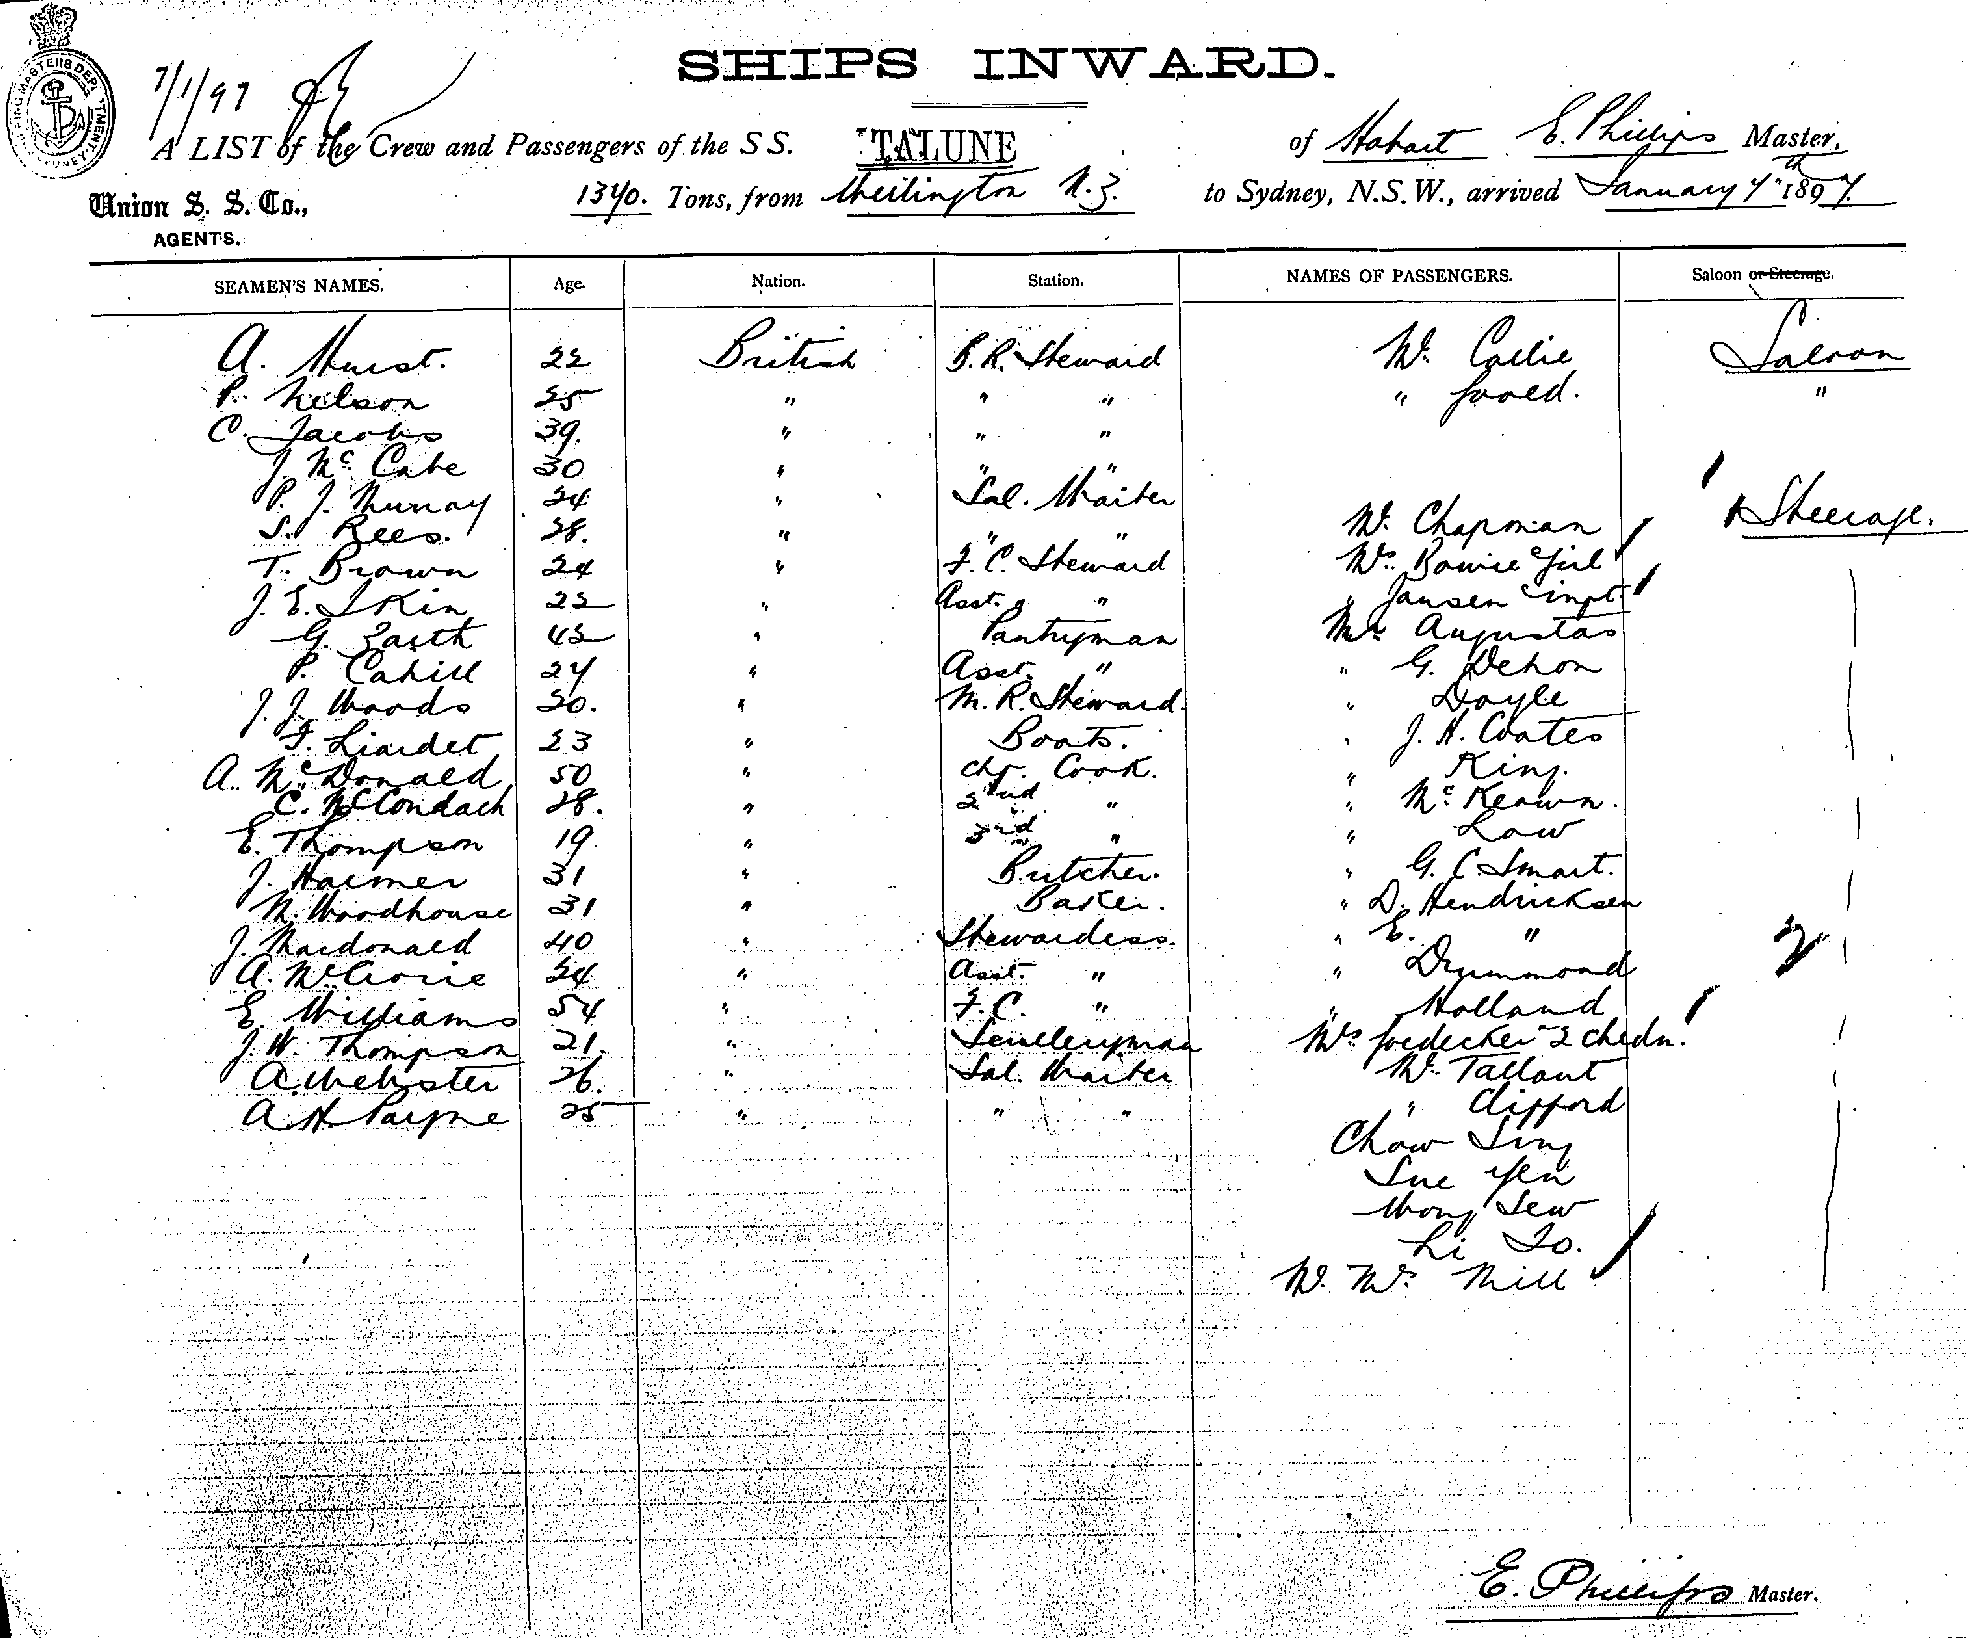 SHIPS INWARD.
7/1/97
A LIST of the Crew and Passengers of the S S. TALUNE of Hobart E. Phillips Master,
Union S. S. Co.,
AGENTS.
1370. Tons, from Wellington N. Z. to Sydney, N.S.W., arrived January 7th 1897.
SEAMEN'S NAMES. Age Nation. Station. NAMES OF PASSENGERS. Saloon or Steerage.
A. Hurst. 22 British B. R. Steward Mr. Collie Saloon
P. Nelson 25 " " " " Joved. "
C. Jacobs 39. " " "
J. McCabe 30 " " "
P. J. Murray 24 " Sal. Waiter
S. Rees. 28. " " " Mr. Chapman Steerage.
T. Brown 24 " F. C. Steward Mrs. Bowie & Girl
J. E. Skin 22 " Asst. " " " Jansen & inft.
G. Earth 42 " Pantryman Mr Augustas
P. Cahill 27 " Asst. " " G. Dehon
J. J. Woods 20. " M. R. Steward. " Doyle
F. Liardet 23 " Boots. " J. H. Coates
A. McDonald 50 " Chf. Cook. " King.
C. McCondach 28. " 2nd " " McKeown.
E. Thompson 19. " 3rd " " Law
J. Harmer 31 " Butcher. " G. C. Smart.
N. Woodhouse 31 " Baker. " D. Hendricksen
J. Macdonald 40 " Stewardess. " E. "
A. McCrorie 24 " Asst. " " Drummond
E Williams 54 " F. C. " " Holland
J. W. Thompson 21. " Sculleryman Mrs 2 chedn.
A. Webster 26. " Sal. Waiter Mr. Tallant
A H Payne 25 " " " " Clifford
Chow Sing
Sue Yen
Wong Sew
Li So.
Mr. Mrs. Mill
E. Phillips Master.